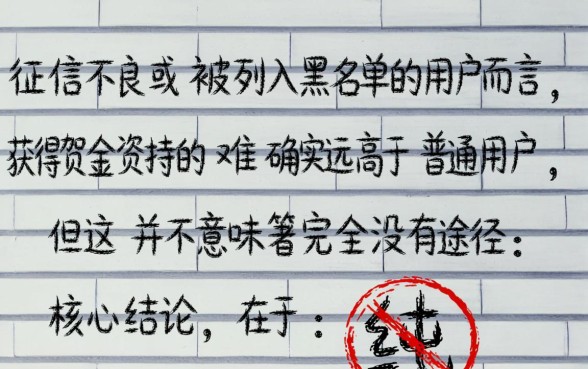 征信不良或 被列入黑名单的用户而言，
获得贺金资持的 难 确实远高于 普通用户，
但这 并不意味箸完全没有途径：
核心结论，在于：纯